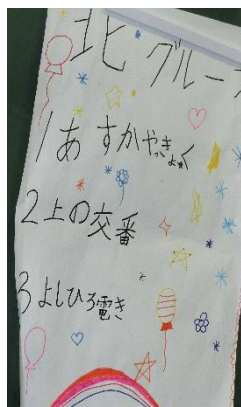 北グルー
1あすかやっきょく
2上の交番
3よしひろ電き